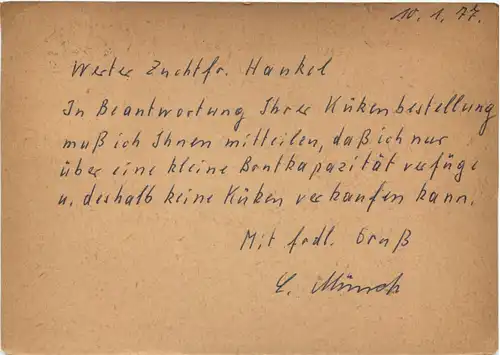 10. 1. 77.
Werter Zuchtfr. Hankel
In Beantwortung Ihrer Kükenbestellung
muß ich Ihnen mitteilen, daß ich nur
über eine kleine Brutkapazität verfüge
u. deshalb keine Küken verkaufen kann.
Mit frdl. Gruß